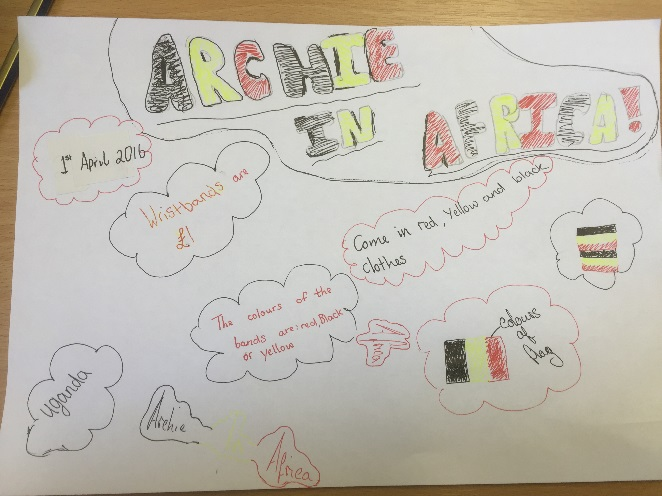 ARCHIE
IN AFRICA!
1st April 2016
Wristbands are
£1
Come in red, Yellow and black
clothes
The colours of the
bands are: red, Black
or yellow
colours
of
flag
Uganda
Archie
Africa